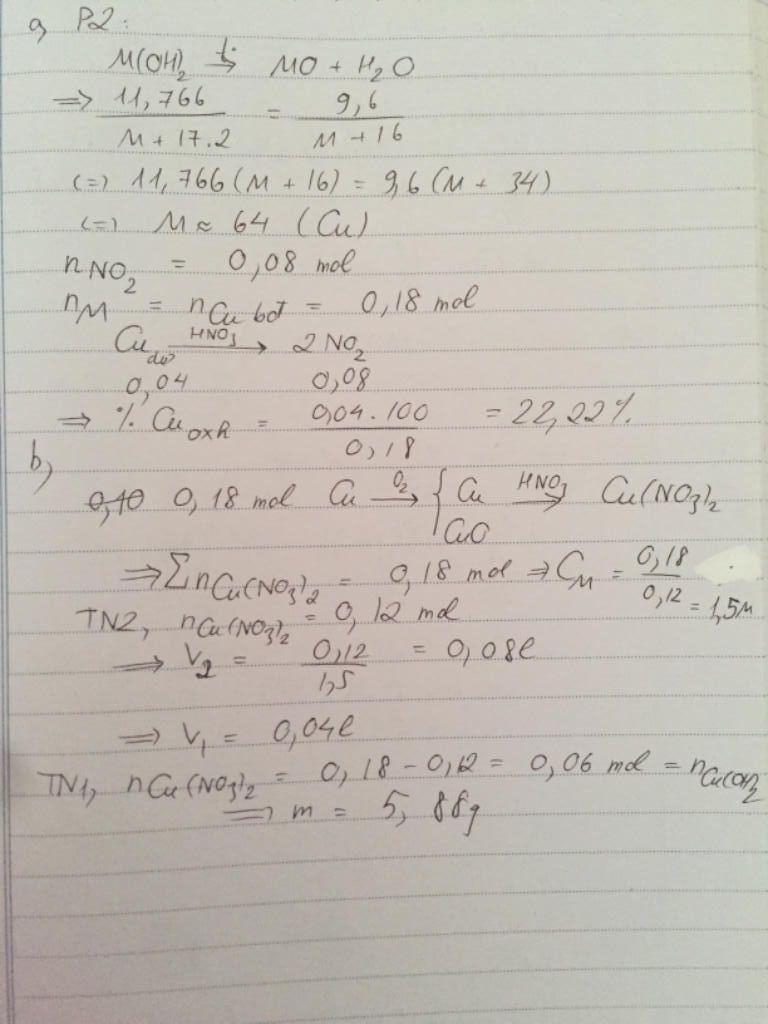 a, P2:
M(OH)₂ →(t°) MO + H₂O
=> 11,766 / (M + 17.2) = 9,6 / (M + 16)
(=) 11,766(M + 16) = 9,6(M + 34)
(=) M ≈ 64 (Cu)
nNO₂ = 0,08 mol
nM = nCu bđ = 0,18 mol
Cu dư →(HNO3) 2NO₂
0,04 0,08
=> % Cu oxh = 0,04.100 / 0,18 = 22,22%
b,
0,10 0,18 mol Cu →(O₂) { Cu →(HNO3) Cu(NO₃)₂
CuO
=> ΣnCu(NO₃)₂ = 0,18 mol => CM = 0,18 / 0,12 = 1,5M
TN2, nCu(NO₃)₂ = 0,12 mol
=> V₂ = 0,12 / 1,5 = 0,08l
=> V₁ = 0,04l
TN1, nCu(NO₃)₂ = 0,18 - 0,12 = 0,06 mol = nCu(OH)₂
=> m = 5,88g